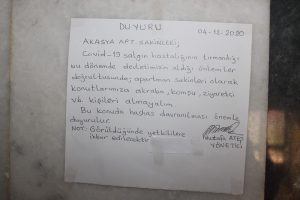 DUYURU
04-12-2020
AKASYA APT. SAKİNLERİ;
Covid-19 salgın hastalığının tırmandığı
bu dönemde devletimizin aldığı önlemler
doğrultusunda; apartman sakinleri olarak
konutlarımıza akraba, komşu, ziyaretçi
vb. kişileri almayalım
Bu konuda hassas davranılması önemle
duyurulur.
NOT: Görüldüğünde yetkililere
ihbar edilecektir
Mustafa ATEŞ
YÖNETİCİ